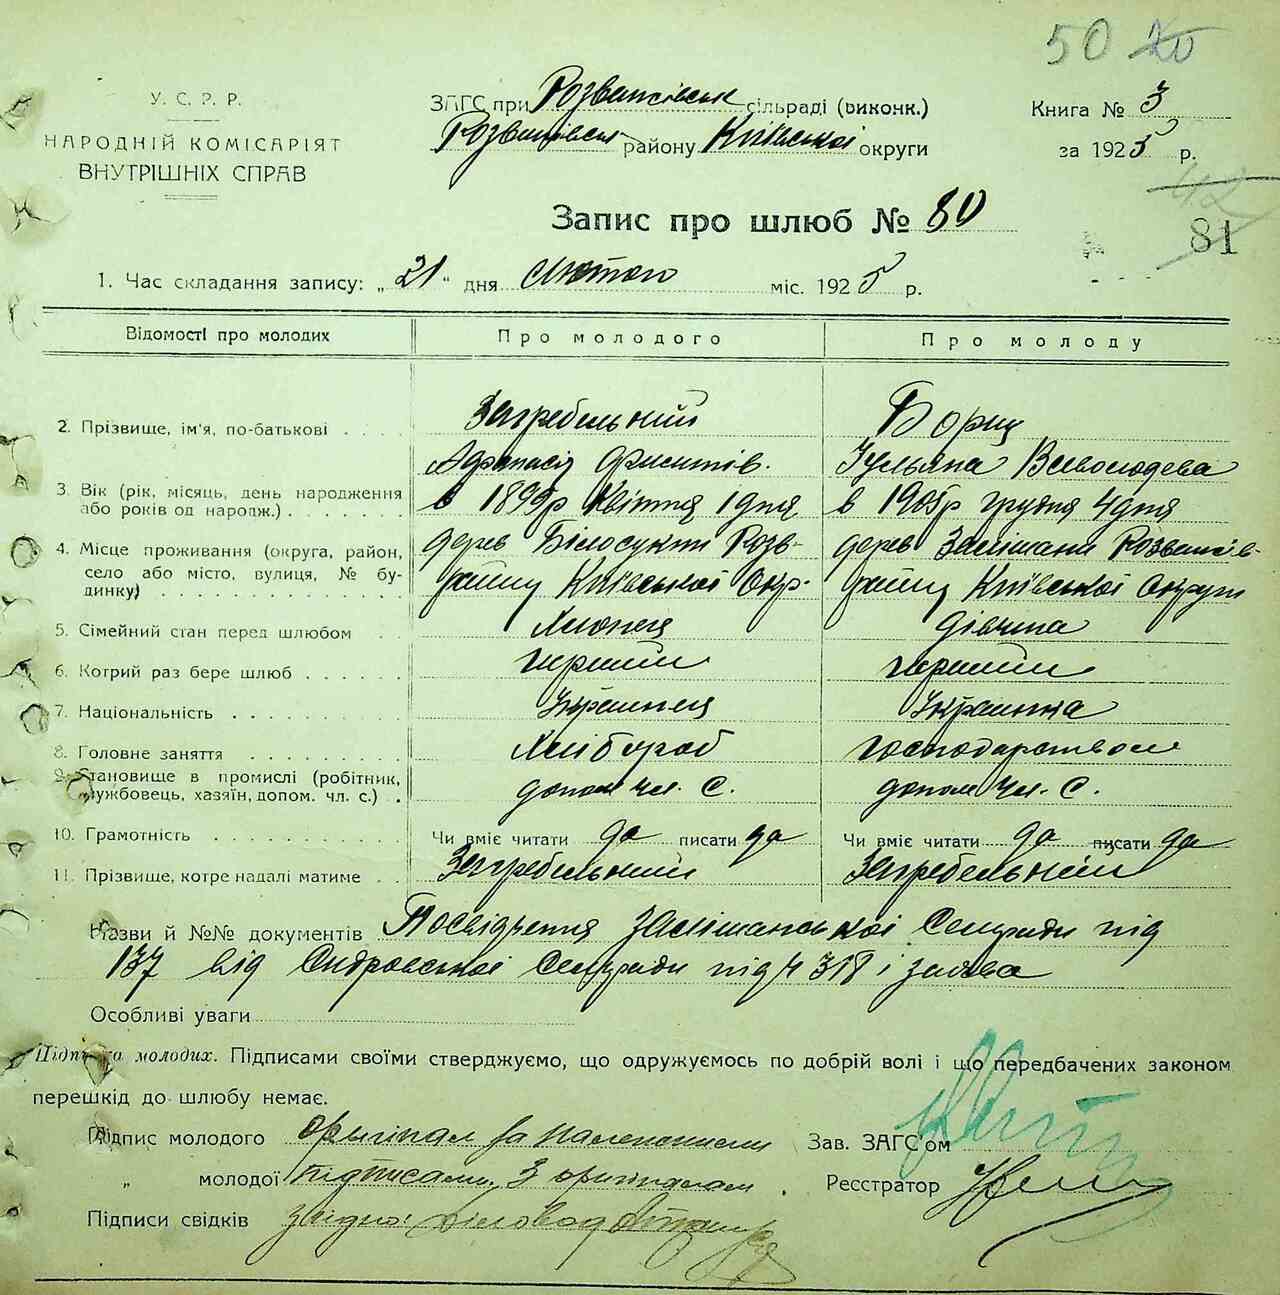 50
У. С. Р. Р.
НАРОДНІЙ КОМІСАРІЯТ
ВНУТРІШНІХ СПРАВ
ЗАГС при Розважівськ сільраді (виконк.)
Розважівськ району Київської округи
Книга № 3
за 1925 р.
42
81
Запис про шлюб № 80
1. Час складання запису: „ 21 " дня лютого міс. 1925 р.
Відомості про молодих Про молодого Про молоду
2. Прізвище, ім'я, по-батькові Загребельний Борщ
Афанасій Ульяна
3. Вік (рік, місяць, день народження або років од народж.) в 1899р Квітня 1 дня в 1905р грудня 4 дня
4. Місце проживання (округа, район, село або місто, вулиця, № будинку) дерев Розв- дерев Замішани Розважів-
району Київської Окр- району Київської Округи
5. Сімейний стан перед шлюбом Хлопец дівчина
6. Котрий раз бере шлюб перший перший
7. Національність Українець Українка
8. Головне заняття Хлібороб господарством
9. Становище в промислі (робітник, службовець, хазяїн, допом. чл. с.) допом чл. С. допом чл. С.
10. Грамотність Чи вміє читати да писати да Чи вміє читати да писати да
11. Прізвище, котре надалі матиме Загребельний Загребельній
Назви й №№ документів Посвідчення Замішанської Сельради під
137 від Сельради під ч 318 і заява
Особливі уваги
Підписка молодих. Підписами своїми стверджуємо, що одружуємось по добрій волі і що передбачених законом
перешкід до шлюбу немає.
Підпис молодого оригінал за
„ молодої підписами. З оригіналом
Підписи свідків згідно: Діловод
Зав. ЗАГС'ом
Реєстратор